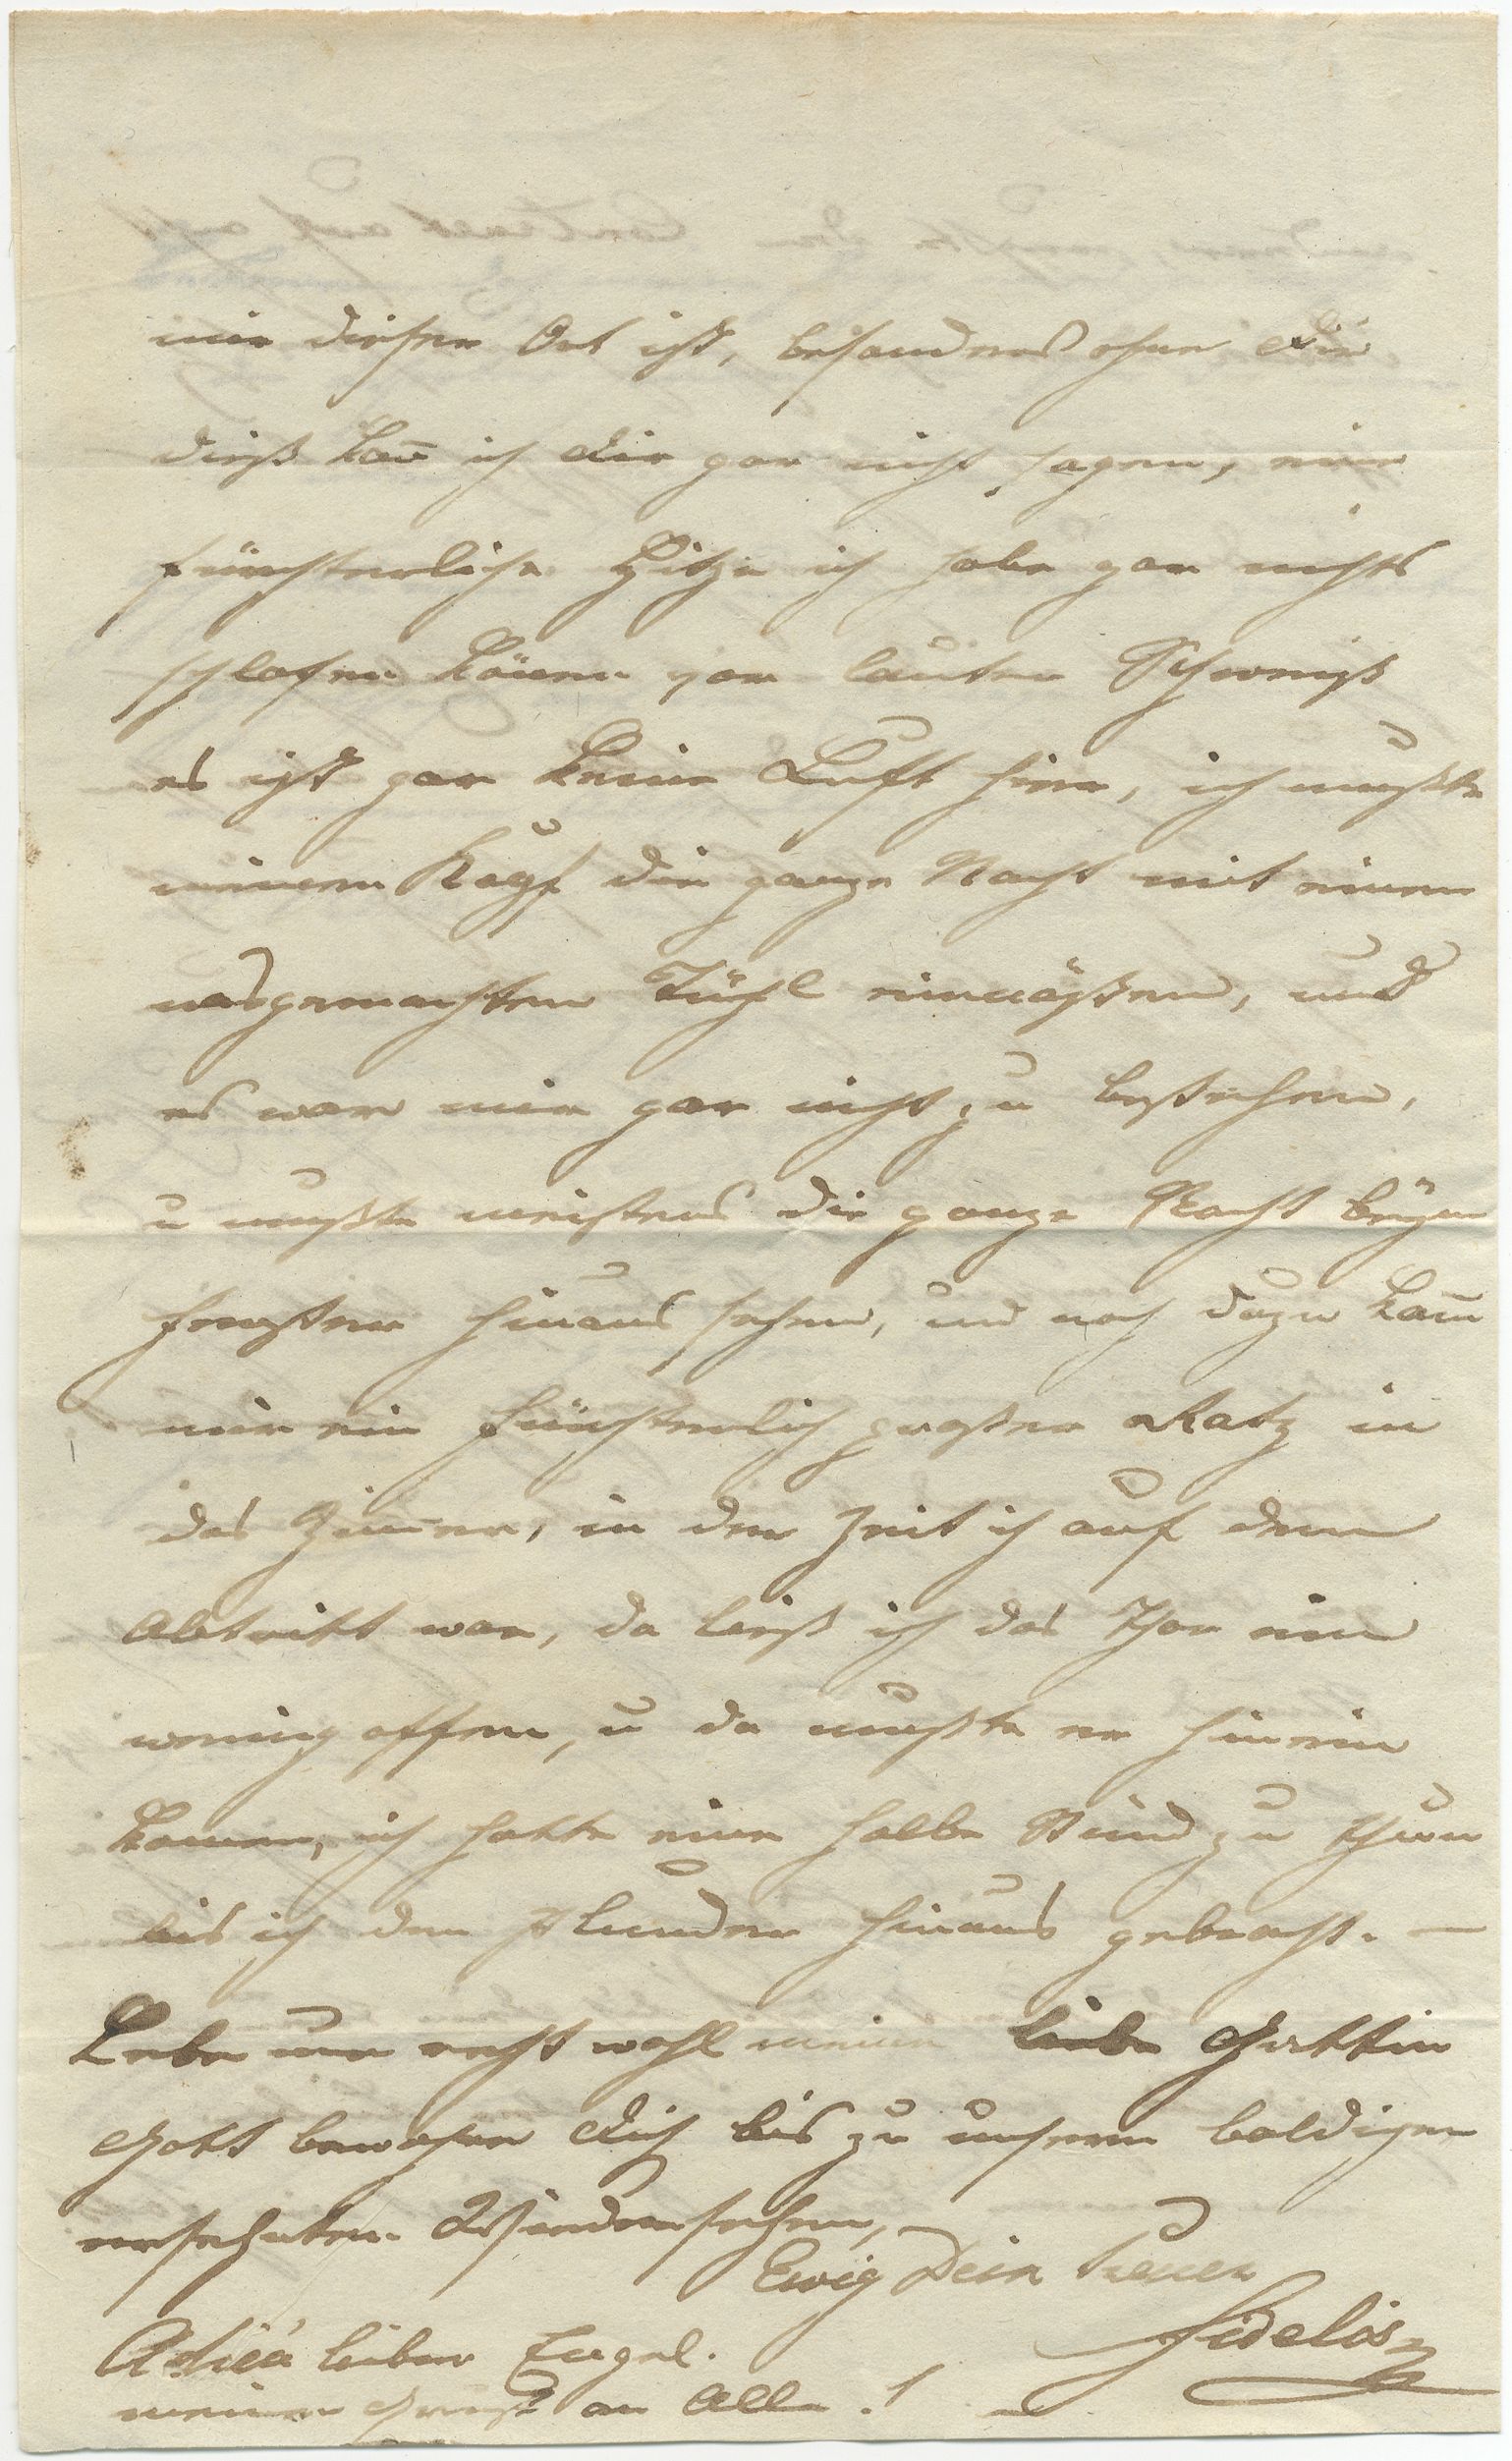 mir dieser Ort ist, besonders ohne Dir
dieß kan̄ ich Dir gar nicht sagen, eine
fürchterliche Hitze ich habe gar nichts
schlafen kön̄en vor lauter Schweiß
es ist gar keine Luft hier, ich mußte
meinen Kopf die ganze Nacht mit einen
nasgemachten Tüchl einnäßen, und
es war mir gar nicht zu bestehen,
u mußte meistens die ganze Nacht beym
Fenster hinaus sehen, und noch dazu kam̄
mir ein fürchterlich großer Ratz in
das Zim̄er, in der Zeit ich auf dem
Abtritt war, da ließ ich das Thor ein
wenig offen, u da mußte er hinein
kom̄en, ich hatte eine halbe Stund zu thuen
bis ich den Plunder hinaus gebracht. —
Lebe nun recht wohl meine liebe Gattin
Gott bewahre Dich bis zu unsern baldigen
ersehnten Wiedersehen,
Ewig Dein treuer
Fidelis
Adieu lieber Engel.
meinen Gruß an Alle !